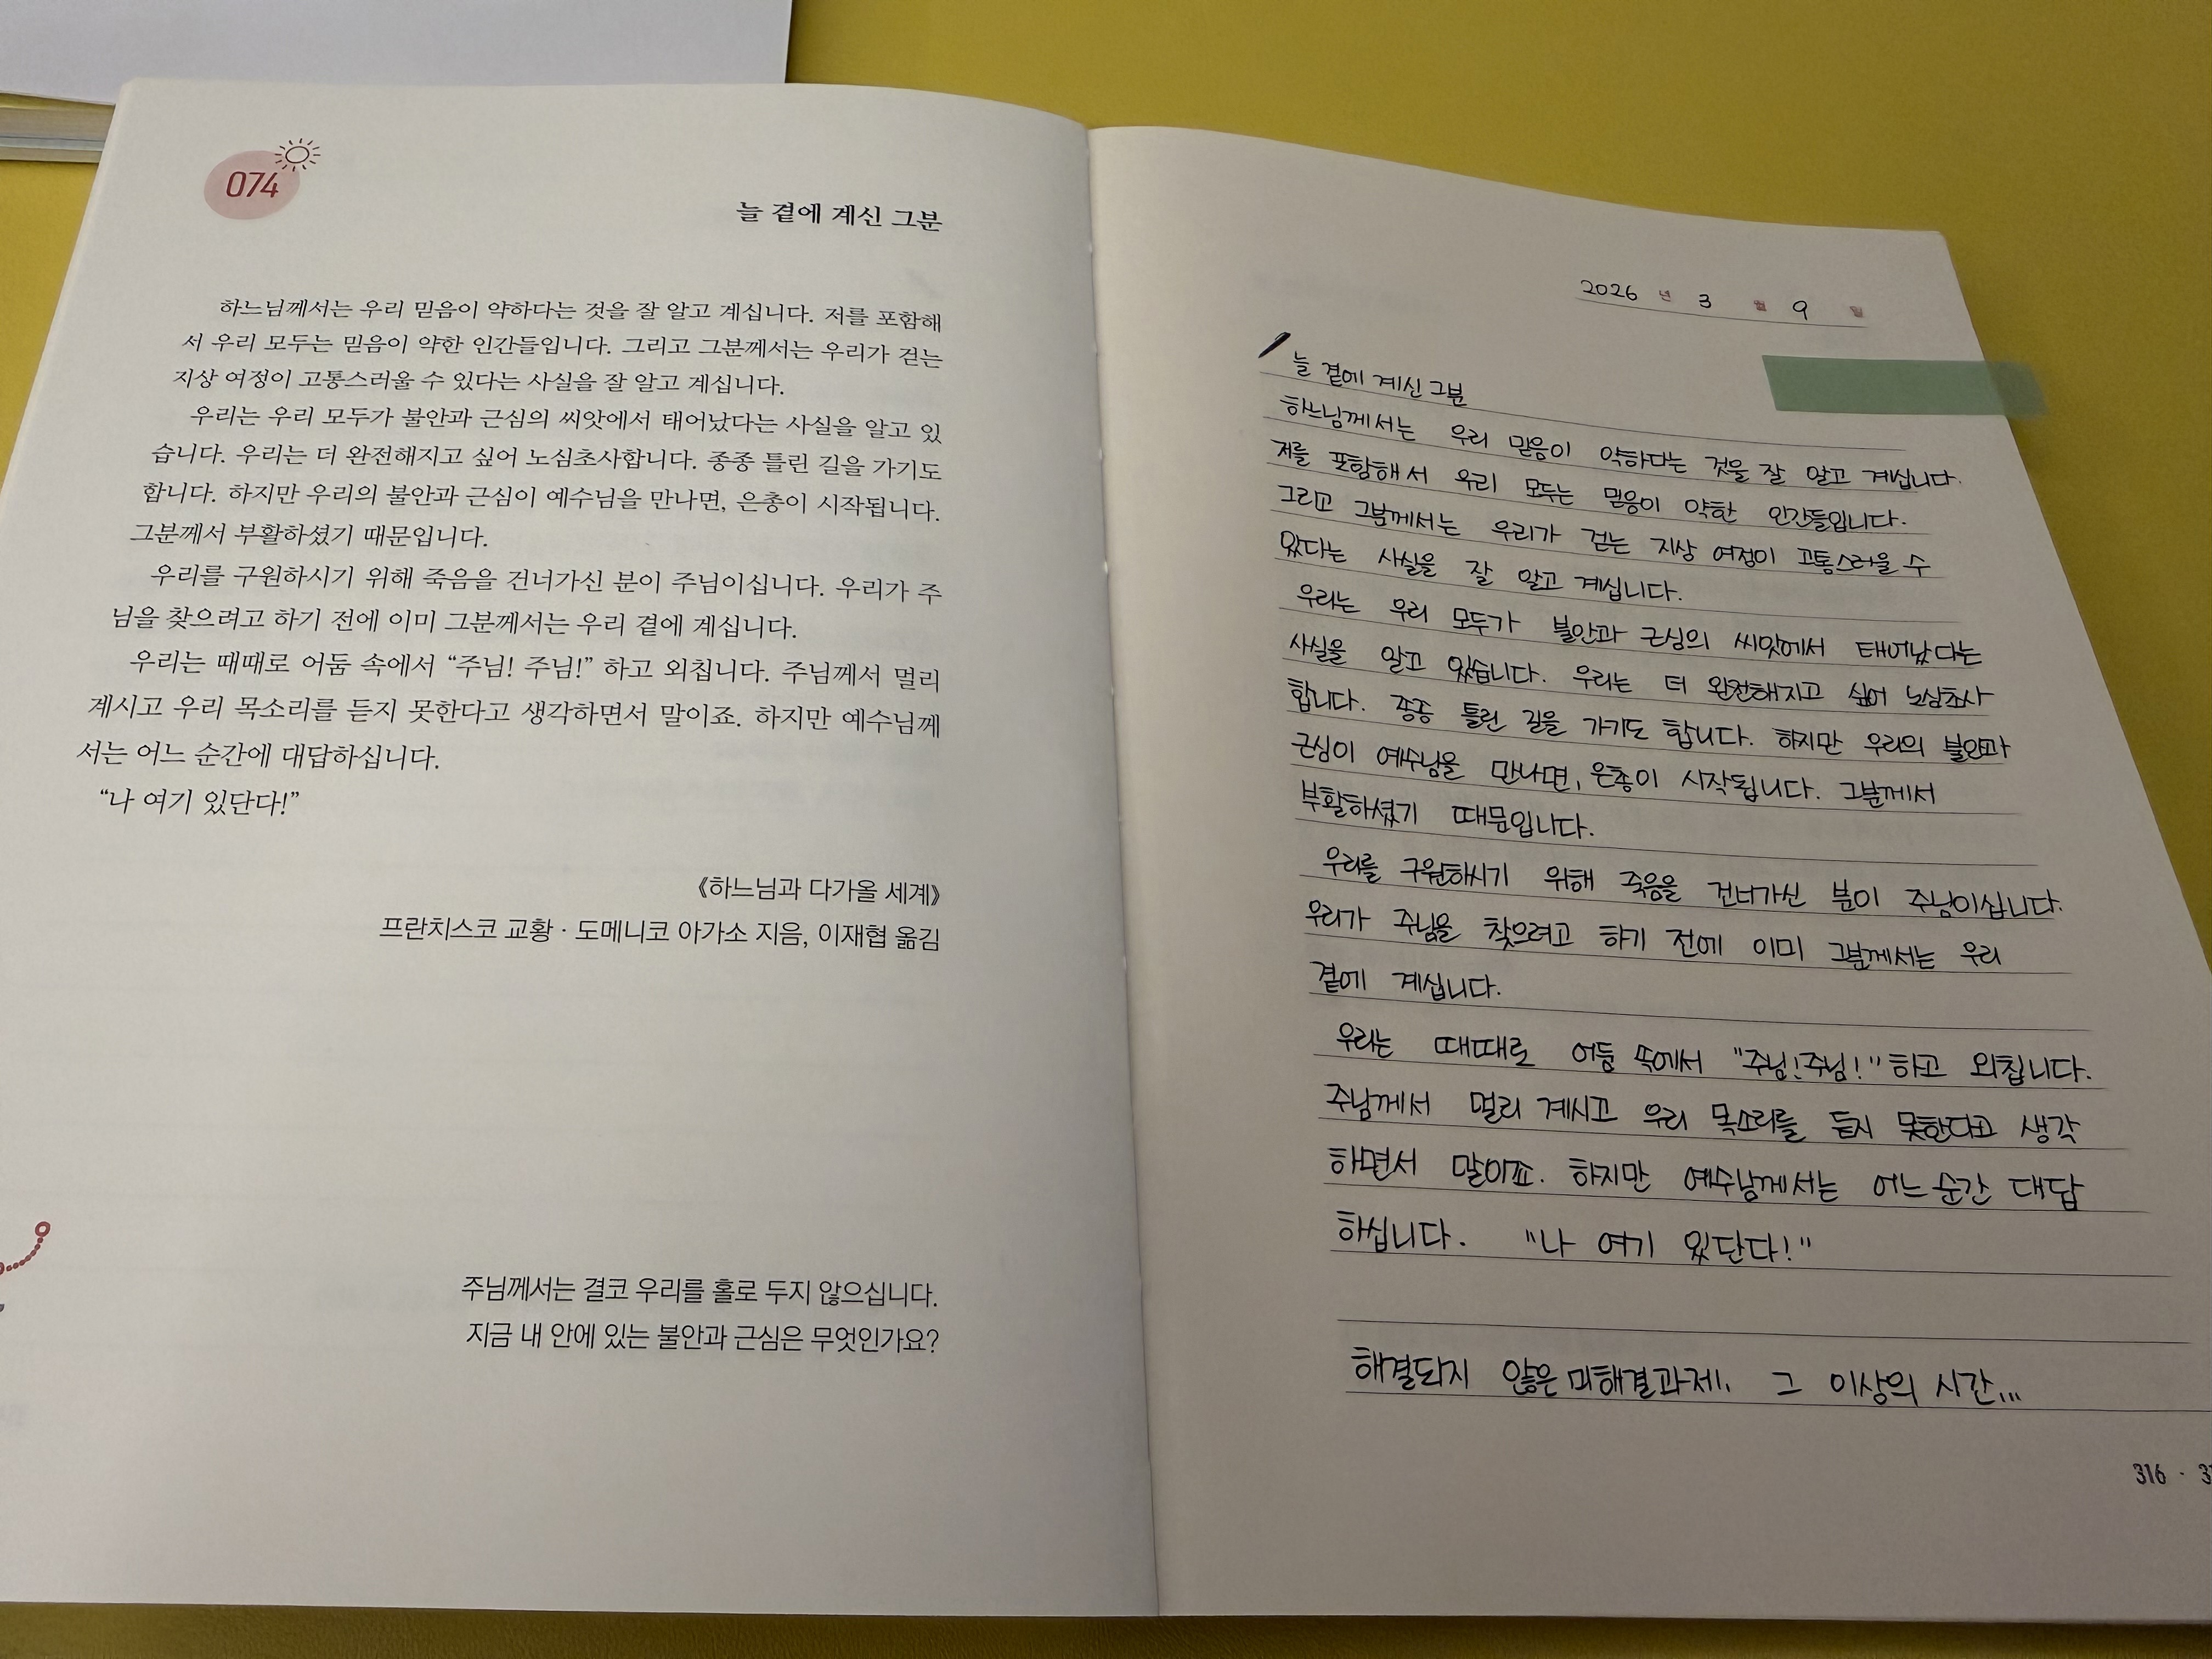 074
늘 곁에 계신 그분
하느님께서는 우리 믿음이 약하다는 것을 잘 알고 계십니다. 저를 포함해
서 우리 모두는 믿음이 약한 인간들입니다. 그리고 그분께서는 우리가 걷는
지상 여정이 고통스러울 수 있다는 사실을 잘 알고 계십니다.
우리는 우리 모두가 불안과 근심의 씨앗에서 태어났다는 사실을 알고 있
습니다. 우리는 더 완전해지고 싶어 노심초사합니다. 종종 틀린 길을 가기도
합니다. 하지만 우리의 불안과 근심이 예수님을 만나면, 은총이 시작됩니다.
그분께서 부활하셨기 때문입니다.
우리를 구원하시기 위해 죽음을 건너가신 분이 주님이십니다. 우리가 주
님을 찾으려고 하기 전에 이미 그분께서는 우리 곁에 계십니다.
우리는 때때로 어둠 속에서 “주님! 주님!” 하고 외칩니다. 주님께서 멀리
계시고 우리 목소리를 듣지 못한다고 생각하면서 말이죠. 하지만 예수님께
서는 어느 순간에 대답하십니다.
“나 여기 있단다!”
《하느님과 다가올 세계》
프란치스코 교황 · 도메니코 아가소 지음, 이재협 옮김
주님께서는 결코 우리를 홀로 두지 않으십니다.
지금 내 안에 있는 불안과 근심은 무엇인가요?
2026 년 3 월 9 일
늘 곁에 계신 그분
하느님께서는 우리 믿음이 약하다는 것을 잘 알고 계십니다.
저를 포함해서 우리 모두는 믿음이 약한 인간들입니다.
그리고 그분께서는 우리가 걷는 지상 여정이 고통스러울 수
있다는 사실을 잘 알고 계십니다.
우리는 우리 모두가 불안과 근심의 씨앗에서 태어났다는
사실을 알고 있습니다. 우리는 더 완전해지고 싶어 노심초사
합니다. 종종 틀린 길을 가기도 합니다. 하지만 우리의 불안과
근심이 예수님을 만나면, 은총이 시작됩니다. 그분께서
부활하셨기 때문입니다.
우리를 구원하시기 위해 죽음을 건너가신 분이 주님이십니다.
우리가 주님을 찾으려고 하기 전에 이미 그분께서는 우리
곁에 계십니다.
우리는 때때로 어둠 속에서 "주님!주님!" 하고 외칩니다.
주님께서 멀리 계시고 우리 목소리를 듣지 못한다고 생각
하면서 말이죠. 하지만 예수님께서는 어느 순간 대답
하십니다. "나 여기 있단다!"
해결되지 않은 미해결과제.. 그 이상의 시간...
316 ·